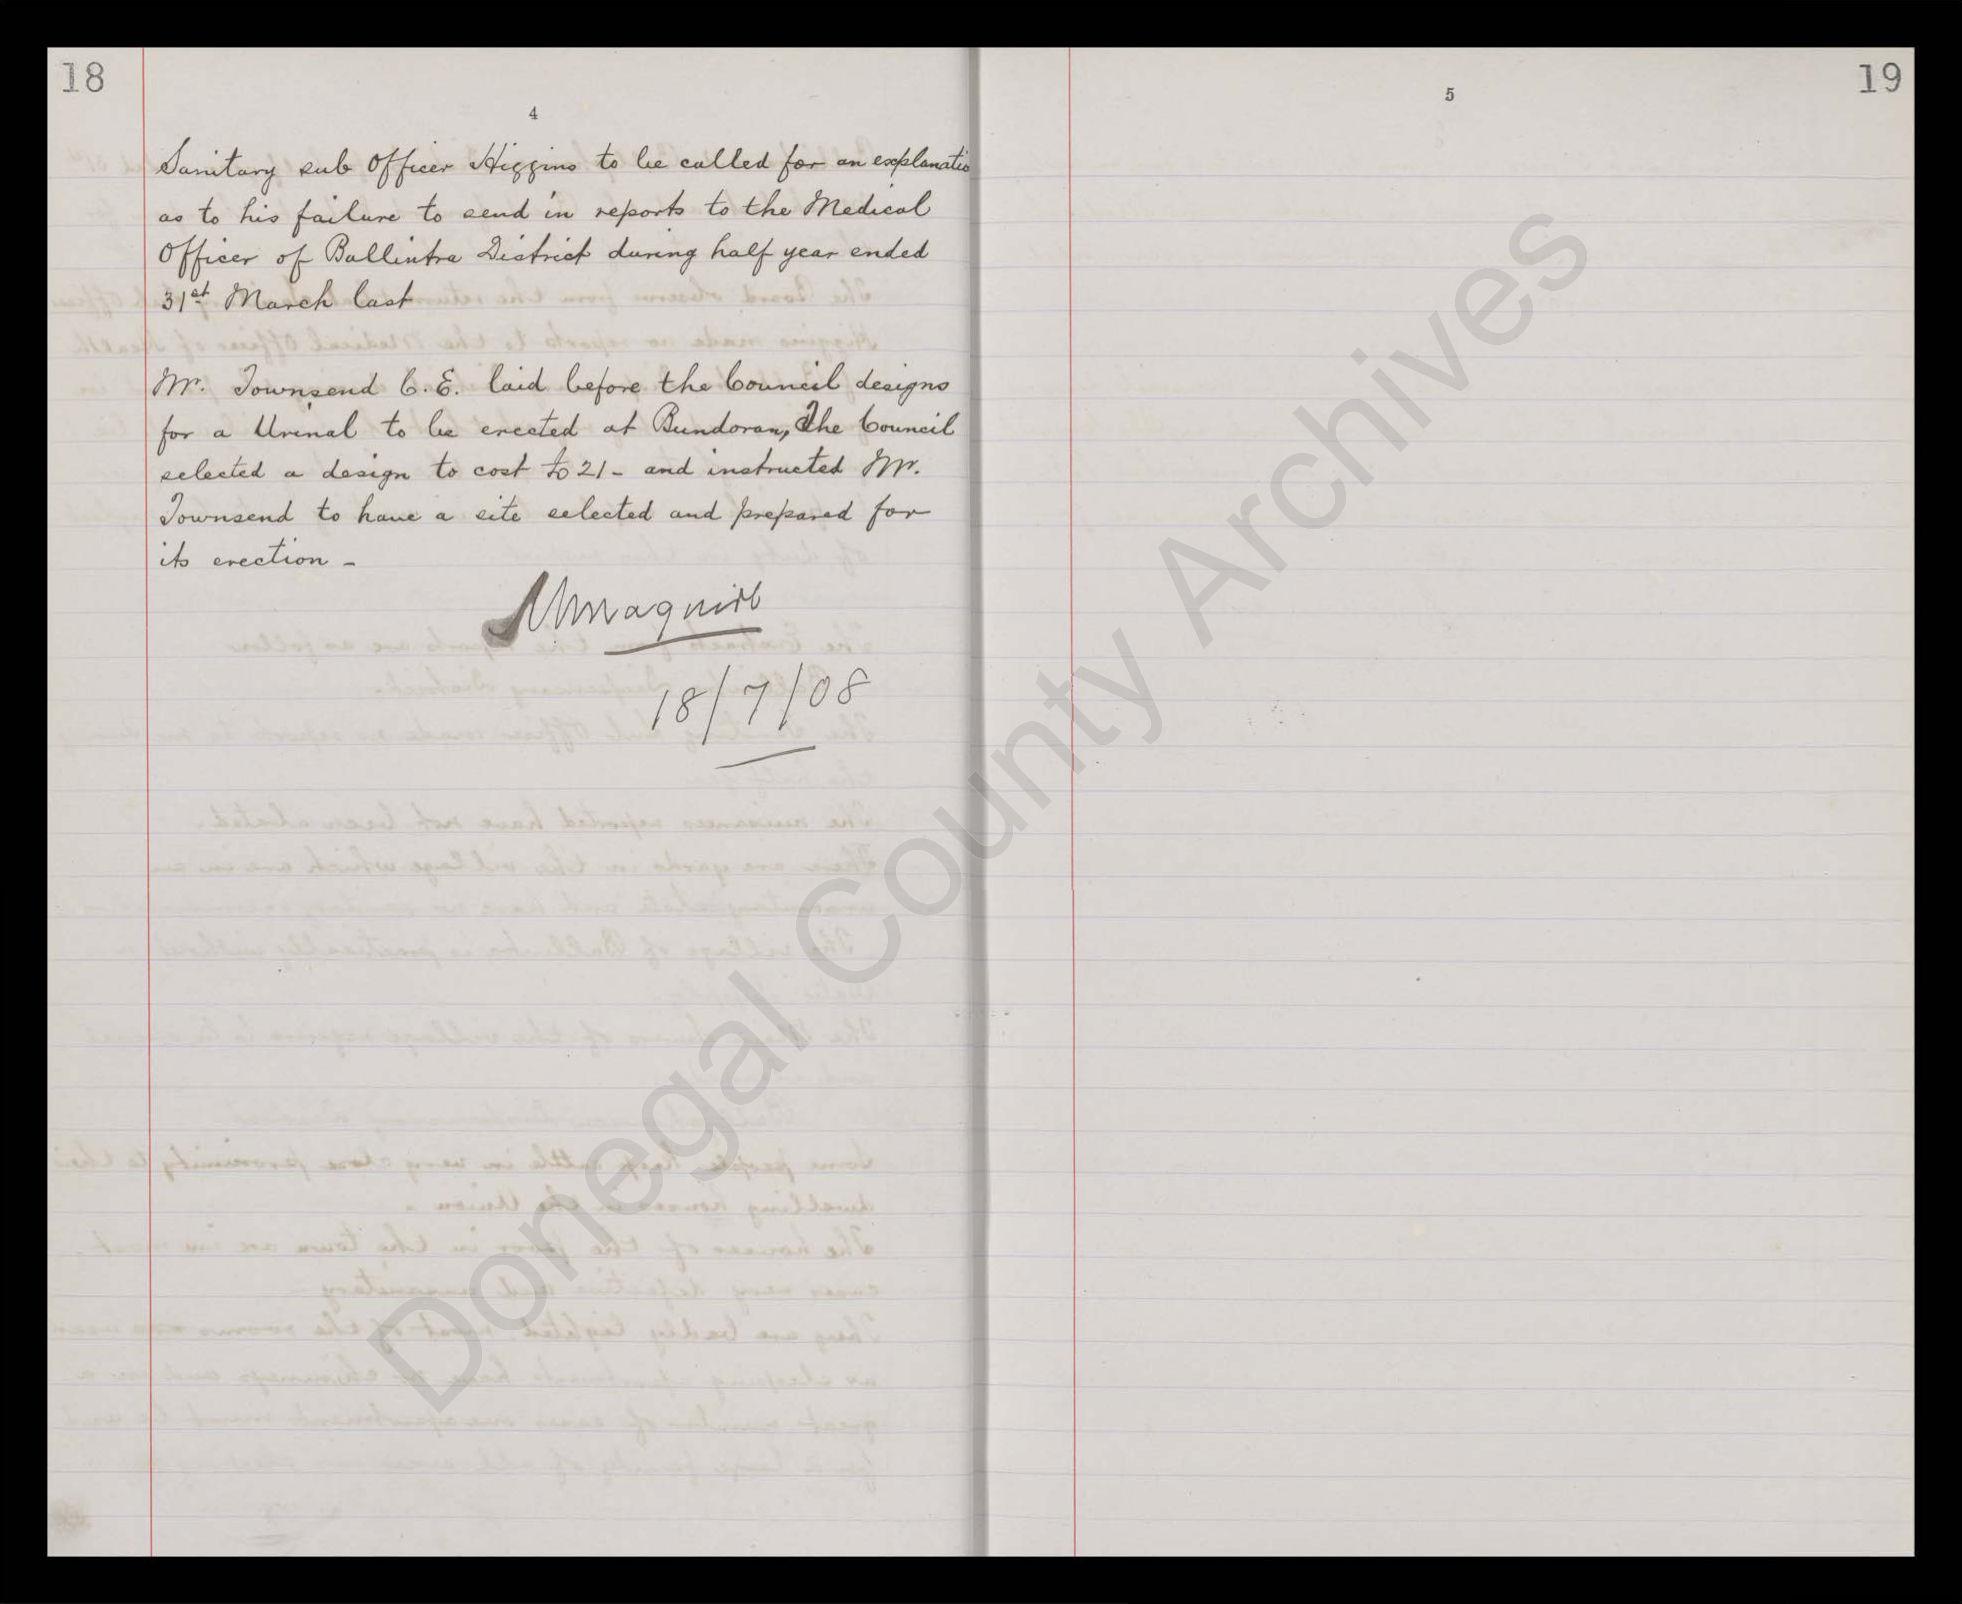 18
4
Sanitary sub Officer Higgins to be called for an explanatio
as to his failure to send in reports to the Medical
Officer of Ballintra District during half year ended
31st March last
Mr. Townsend C.E. laid before the Council designs
for a Urinal to be erected at Bundoran, The Council
selected a design to cost £21- and instructed Mr.
Townsend to have a site selected and prepared for
its erection -
Maguire
18/7/08
5
19
Donegal County Archives